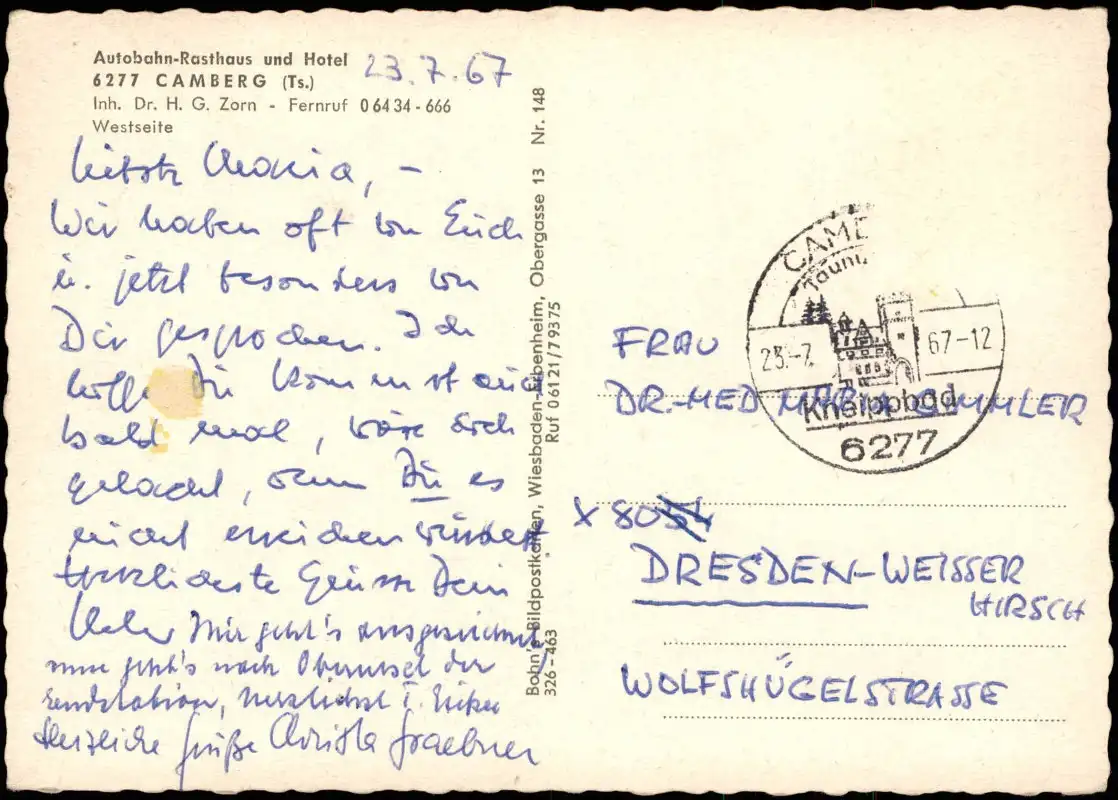 Autobahn-Rasthaus und Hotel
6277 CAMBERG (Ts.)
Inh. Dr. H. G. Zorn - Fernruf 0 64 34 - 666
Westseite
23.7.67
Liebste Maria, –
Wir haben oft von Erich
u. jetzt besonders von
Dir gesprochen. Ich
hoffe Du kommst auch
bald mal, wäre doch
gelacht, wenn Du es
nicht erreichen würdest
Herzlichste Grüsse Dein
Mir geht's ausgezeichnet,
nun geht's nach Oberursel der
Endstation, herzlichst
Herzliche Grüße Christa Graebner
Bohn's Bildpostkarten, Wiesbaden-Erbenheim, Obergasse 13 Nr. 148
326-463 Ruf 0 61 21 / 7 93 75
CAMB
Taunu
23.-7. 67-12
Kneippbad
6277
FRAU
DR.-MED GMMLER
X 8054
DRESDEN-WEISSER
HIRSCH
WOLFSHÜGELSTRASSE